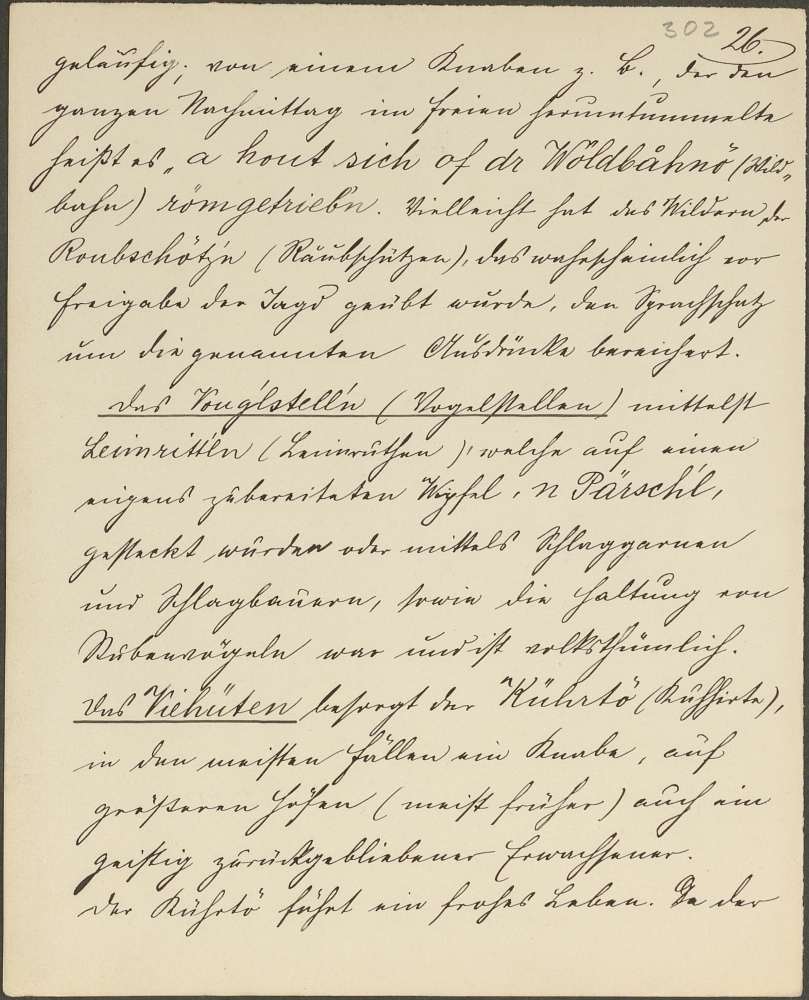 302 26.
geläufig; von einem Knaben z. B., der den
ganzen Nachmittag im Freien herumtummelte
heißt es „a hout sich of dr Wöldbåhnö (Wild-
bahn) römgetrieb'n. Vielleicht hat das Wildern der
Roubschötz'n (Raubschützen), das wahrscheinlich vor
Freigabe der Jagd geübt wurde, den Sprachschatz
um die genannten Ausdrücke bereichert.
Das Voug'lstell'n (Vogelstellen) mittelst
Leimritt'n (Leimruthen), welche auf einen
eigens zubereiteten Wipfel, n Pärsch'l,
gesteckt wurden oder mittels Schlaggarnen
und Schlagbauern, sowie die Haltung von
Stubenvögeln war und ist volksthümlich.
Das Viehüten besorgt der Kühatö (Kuhhirte),
in den meisten Fällen ein Knabe, auf
größeren Höfen (meist früher) auch ein
geistig zurückgebliebener Erwachsener.
Der Kühatö führt ein frohes Leben. In der